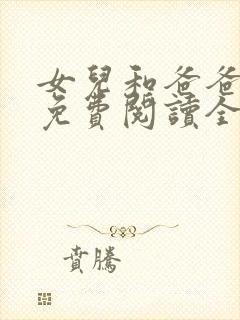 女兒和爸爸
免費閱讀全
賁騰